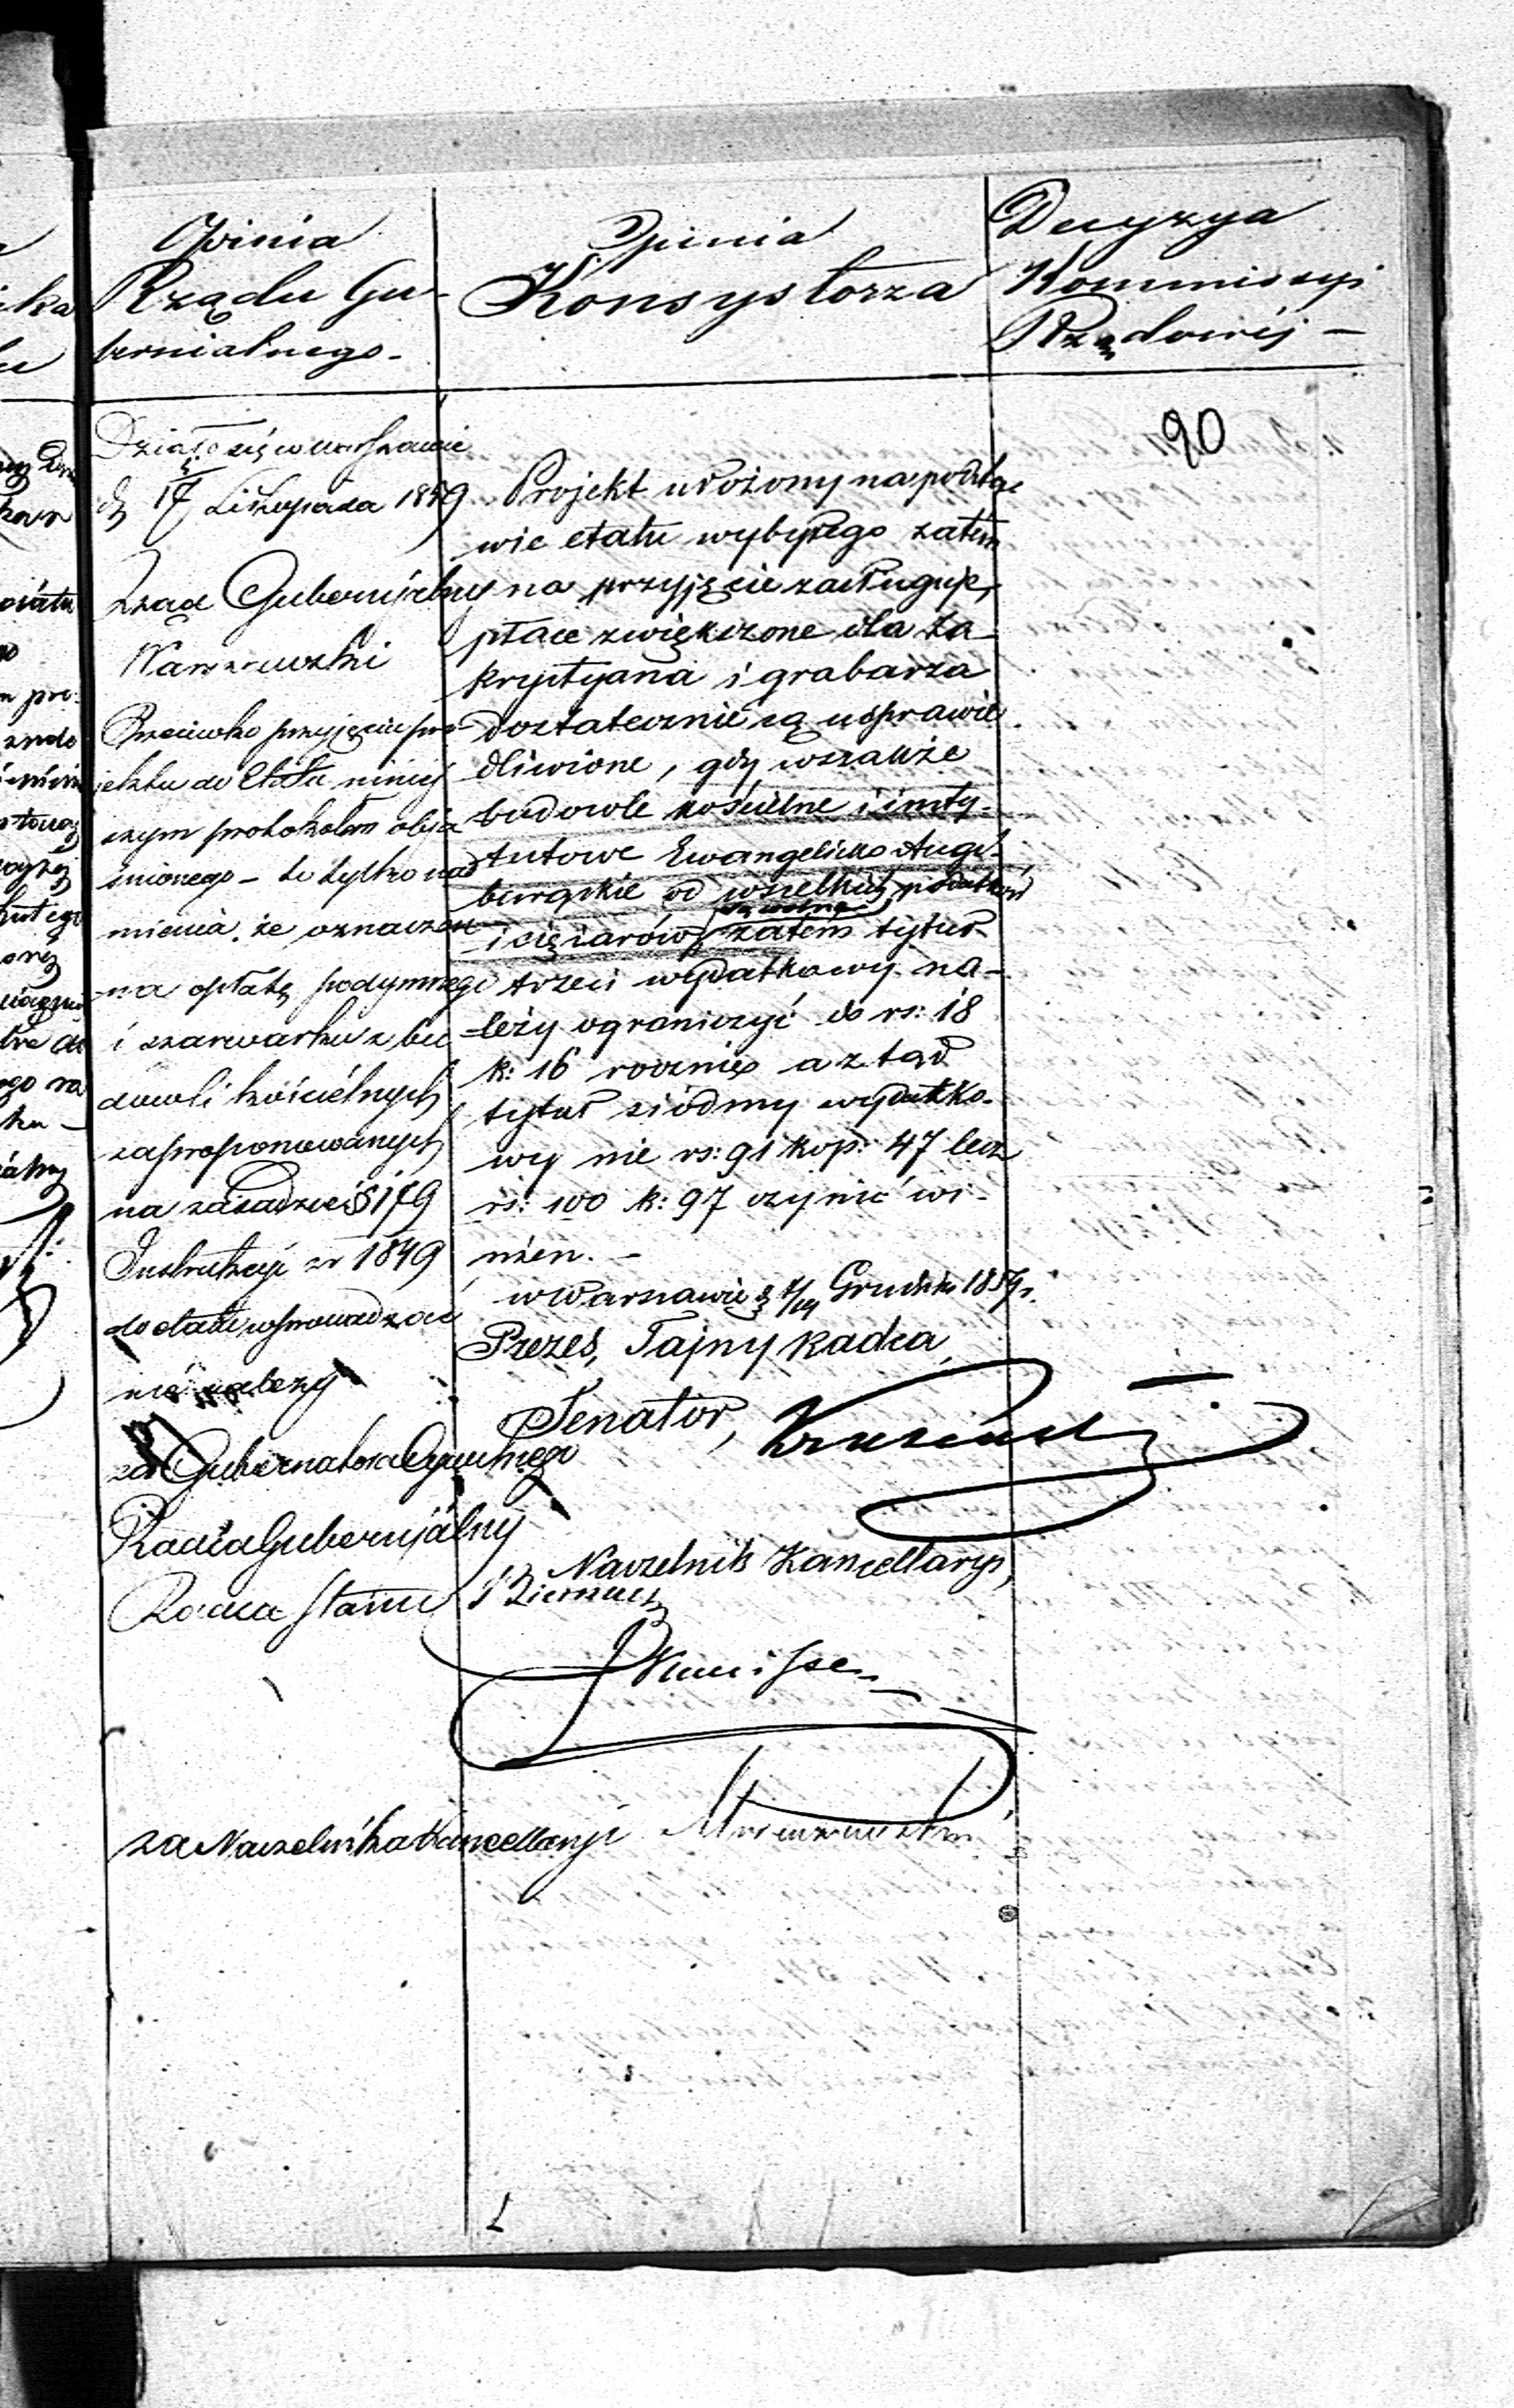 Opinia
Rządu Gu-
bernialnego.
Działo się w Warszawie
d. 17 Listopada 1859
Rząd Gubernijalny
Warszawski
Przeciwko przyjęciu pro-
jektu do Etatu niniej
szym protokołem obja
śnionego – to tylko nad
mienia, że oznaczen
na opłatę podymnego
i szarwarku z bu
dowli kościelnych
zaproponowanych
na zasadzie § 179
Instrukcyi zr 1849
do etatu wprowadzać
nie należy
za Gubernatora Cywilnego
Radca Gubernijalny
Radca Stanu
za Naczelnika Kancellaryi
Opinia
Konsystorza
Projekt ułożony na podsta
wie etatu wybyłego zatem
na przyjęcie zasługuje,
płace zwiększone dla Za
krystyana i grabarza
dostatecznie są usprawie
dliwione, gdy wszakże
budowle kościelne i insty-
tutowe Ewangelicko Augs
burgskie od wszelkich podatków
są wolne
i ciężarów, zatem tytuł
trzeci wydatkowy na-
leży ograniczyć do rs: 18
k: 16 rocznie a ztąd
tytuł siódmy wydatko-
wy nie rs: 91 kop: 47 lecz
rs: 100 k: 97 czynić wi-
nien. –
w Warszawie d. Grudnia 1859 r.
Prezes, Tajny Radca
Senator,
Naczelnik Kancellaryi,
Decyzya
Kommissyi
Rządowéj –
90